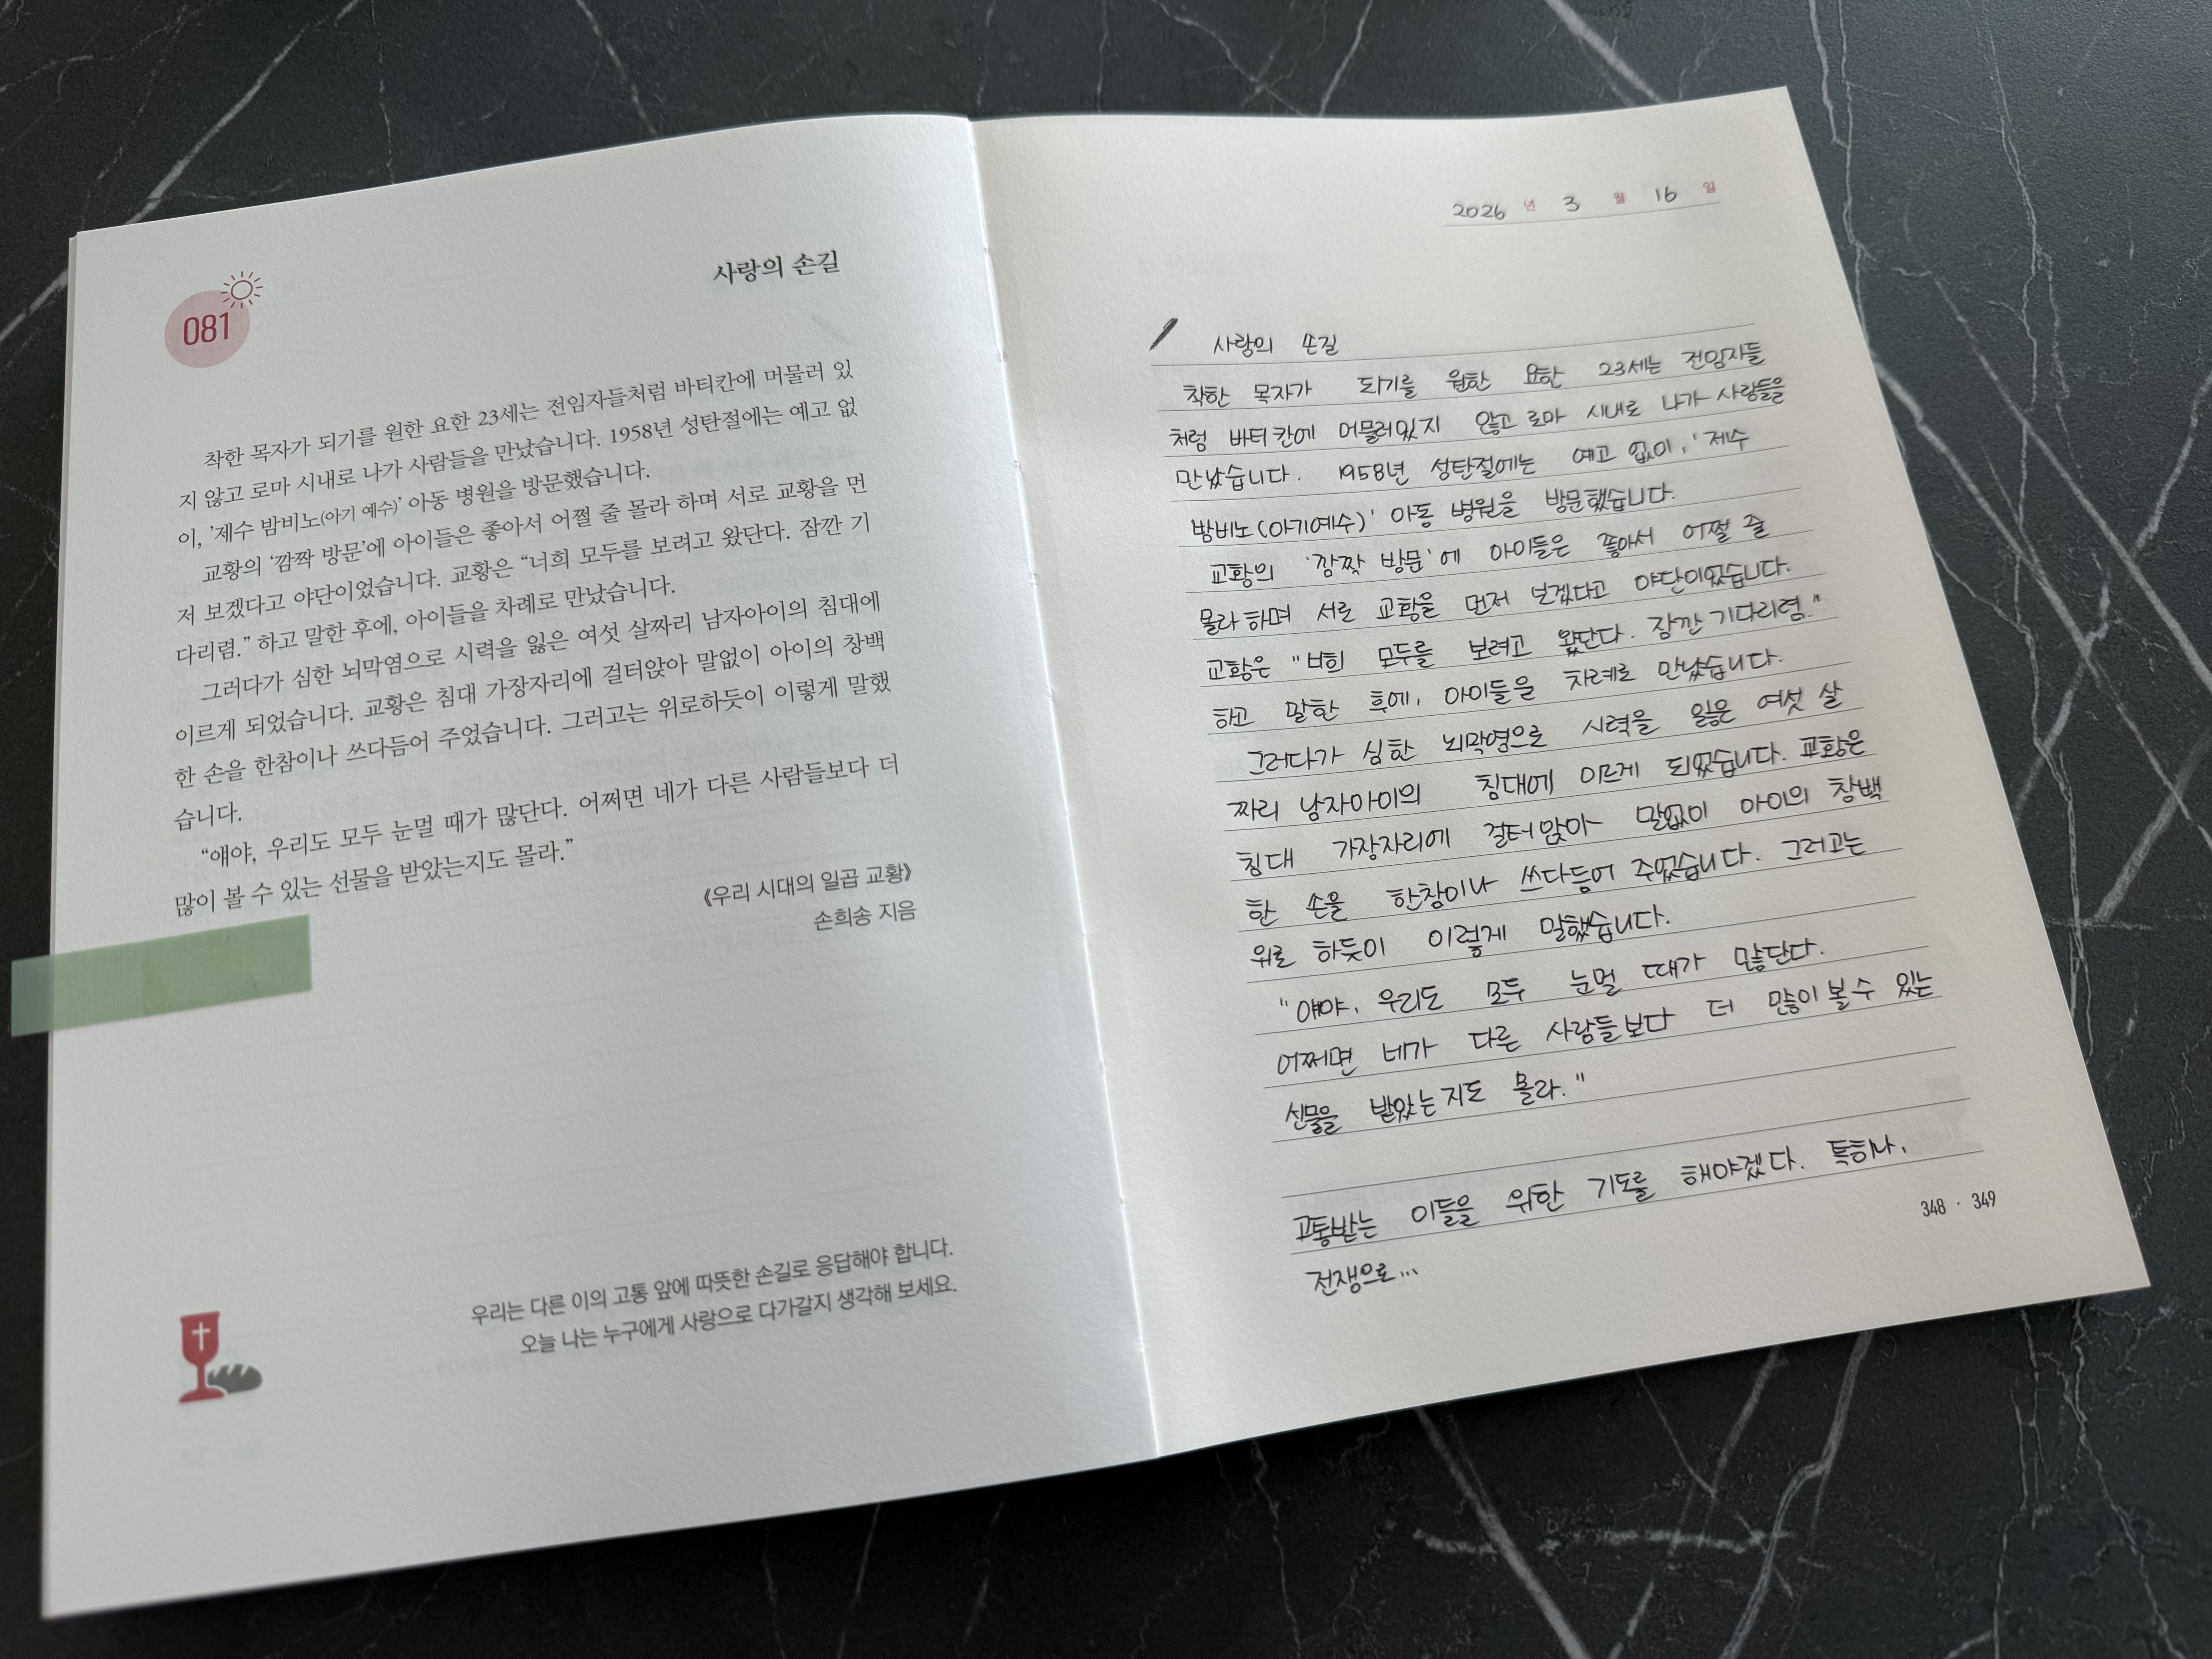 081
사랑의 손길
착한 목자가 되기를 원한 요한 23세는 전임자들처럼 바티칸에 머물러 있
지 않고 로마 시내로 나가 사람들을 만났습니다. 1958년 성탄절에는 예고 없
이, '제수 밤비노(아기 예수)' 아동 병원을 방문했습니다.
교황의 '깜짝 방문'에 아이들은 좋아서 어쩔 줄 몰라 하며 서로 교황을 먼
저 보겠다고 야단이었습니다. 교황은 “너희 모두를 보려고 왔단다. 잠깐 기
다리렴.” 하고 말한 후에, 아이들을 차례로 만났습니다.
그러다가 심한 뇌막염으로 시력을 잃은 여섯 살짜리 남자아이의 침대에
이르게 되었습니다. 교황은 침대 가장자리에 걸터앉아 말없이 아이의 창백
한 손을 한참이나 쓰다듬어 주었습니다. 그러고는 위로하듯이 이렇게 말했
습니다.
“얘야, 우리도 모두 눈멀 때가 많단다. 어쩌면 네가 다른 사람들보다 더
많이 볼 수 있는 선물을 받았는지도 몰라.”
《우리 시대의 일곱 교황》
손희송 지음
우리는 다른 이의 고통 앞에 따뜻한 손길로 응답해야 합니다.
오늘 나는 누구에게 사랑으로 다가갈지 생각해 보세요.
2026 년 3 월 16 일
사랑의 손길
착한 목자가 되기를 원한 요한 23세는 전임자들
처럼 바티칸에 머물러있지 않고 로마 시내로 나가 사람들을
만났습니다. 1958년 성탄절에는 예고 없이, '제수
밤비노(아기예수)' 아동 병원을 방문했습니다.
교황의 '깜짝 방문'에 아이들은 좋아서 어쩔 줄
몰라 하며 서로 교황을 먼저 보겠다고 야단이었습니다.
교황은 "너희 모두를 보려고 왔단다. 잠깐 기다리렴."
하고 말한 후에, 아이들을 차례로 만났습니다.
그러다가 심한 뇌막염으로 시력을 잃은 여섯 살
짜리 남자아이의 침대에 이르게 되었습니다. 교황은
침대 가장자리에 걸터앉아 말없이 아이의 창백
한 손을 한참이나 쓰다듬어 주었습니다. 그러고는
위로 하듯이 이렇게 말했습니다.
"얘야, 우리도 모두 눈멀 때가 많단다.
어쩌면 네가 다른 사람들보다 더 많이 볼 수 있는
선물을 받았는지도 몰라."
고통받는 이들을 위한 기도를 해야겠다. 특히나,
전쟁으로...
348 · 349